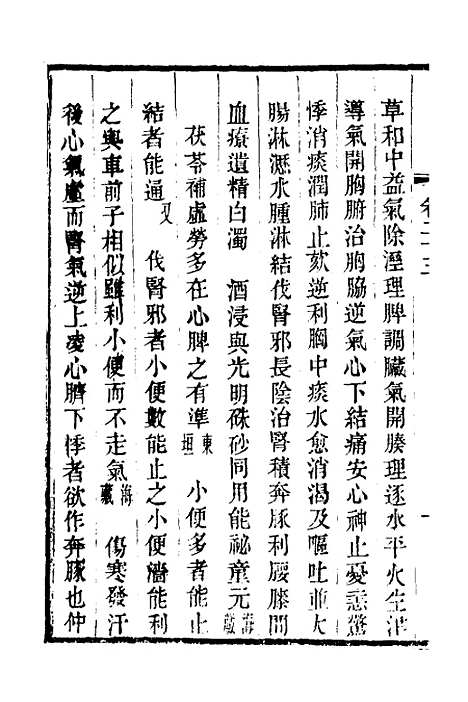 卷二十三
草和中益氣除溼理脾調臟氣開腠理逐水平火生津
導氣開胸腑治胸脇逆氣心下結痛安心神止憂恚驚
悸消痰潤肺止欬逆利胸中痰水愈消渴及嘔吐並大
腸淋瀝水腫淋結伐腎邪長陰治腎積奔豚利腰膝間
血療遺精白濁　酒浸與光明硃砂同用能祕童元海藏
茯苓補虛勞多在心脾之有準東垣　小便多者能止
結者能通又　伐腎邪者小便數能止之小便濇能利
之與車前子相似雖利小便而不走氣海藏　傷寒發汗
後心氣虛而腎氣逆上凌心臍下悸者欲作奔豚也仲